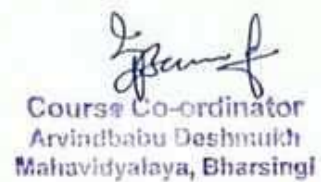 Course Co-ordinator
Arvindbabu Deshmukh
Mahavidyalaya, Bharsingi